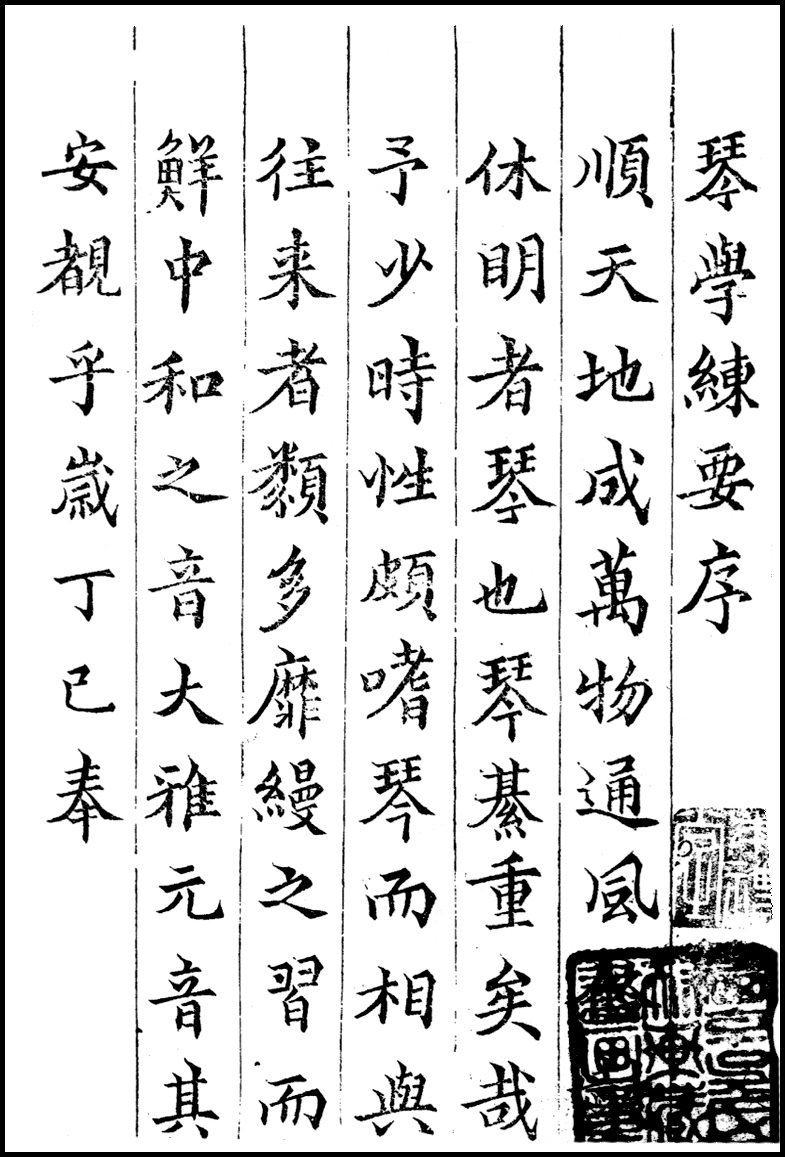 琴學練要序
順天地成萬物通風
休明者琴也琴綦重矣哉
予少時性頗嗜琴而相與
往来者類多靡縵之習而
鮮中和之音大雅元音其
安覩乎嵗丁已奉